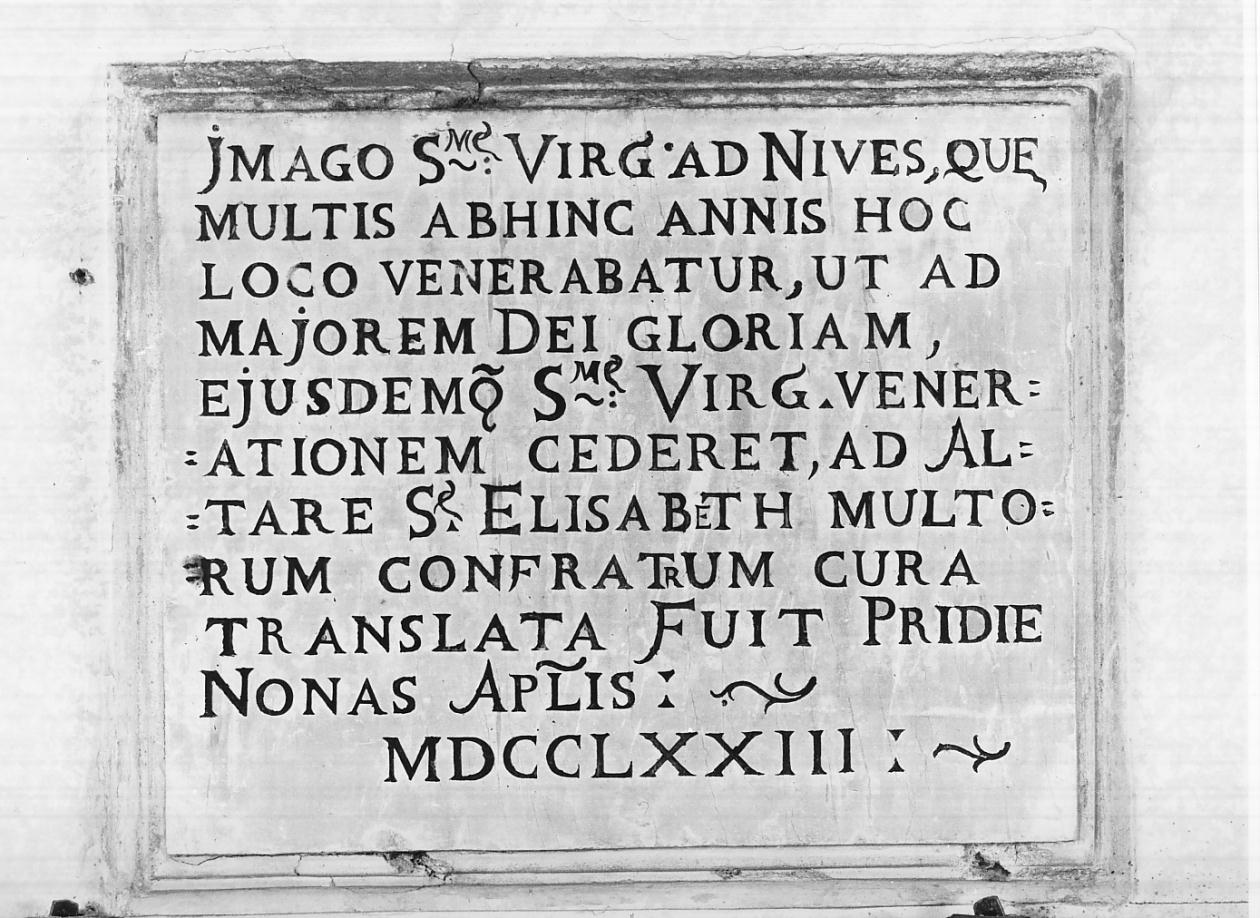 JMAGO Sᴹę VIRG· AD NIVES, QUĘ
MULTIS ABHINC ANNIS HOC
LOCO VENERABATUR, UT AD
MAJOREM DEI GLORIAM,
EJUSDEMQ̃ Sᴹę VIRG. VENER=
=ATIONEM CEDERET, AD AL=
=TARE Sę. ELISABETH MULTO=
=RUM CONFRATRUM CURA
TRANSLATA FUIT PRIDIE
NONAS APL̃IS :
MDCCLXXIII :